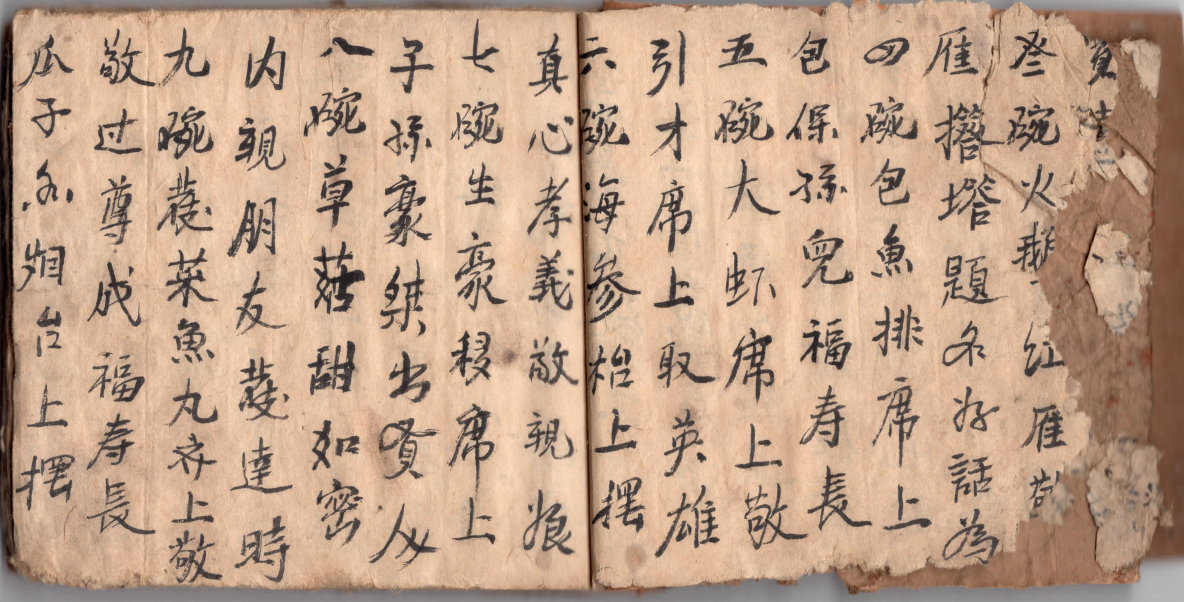 叁碗火鵝红雁
雁撘塔題名好話為
四碗包魚排席上
包保孫兒福寿長
五碗大虾席上敬
引才席上取英雄
六碗海參枱上摆
真心孝義敬親娘
七碗生豪移席上
子孫豪桀出贤人
八碗草菇甜如密
内親朋友發達時
九碗發菜魚丸齐上敬
敬过尊成福寿長
瓜子台上摆